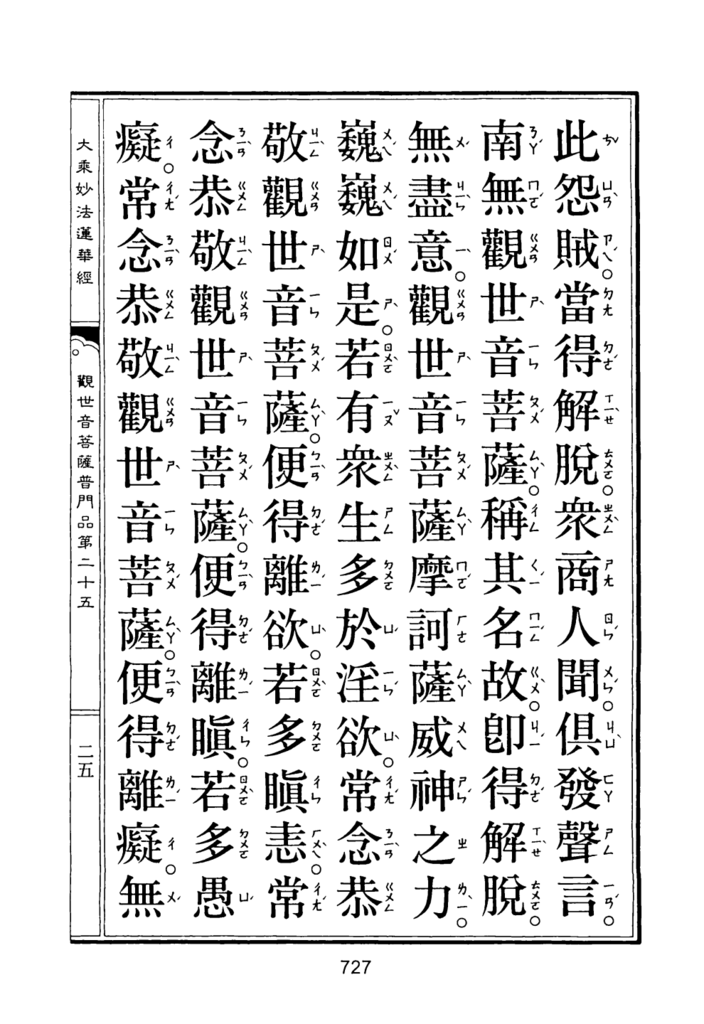 此怨賊當得解脫。衆商人聞。俱發聲言。
南無觀世音菩薩。稱其名故。卽得解脫。
無盡意。觀世音菩薩摩訶薩威神之力。
巍巍如是。若有衆生多於淫欲。常念恭
敬觀世音菩薩。便得離欲。若多瞋恚。常
念恭敬觀世音菩薩。便得離瞋。若多愚
癡。常念恭敬觀世音菩薩。便得離癡。無
大乘妙法蓮華經
觀世音菩薩普門品第二十五
二五
727